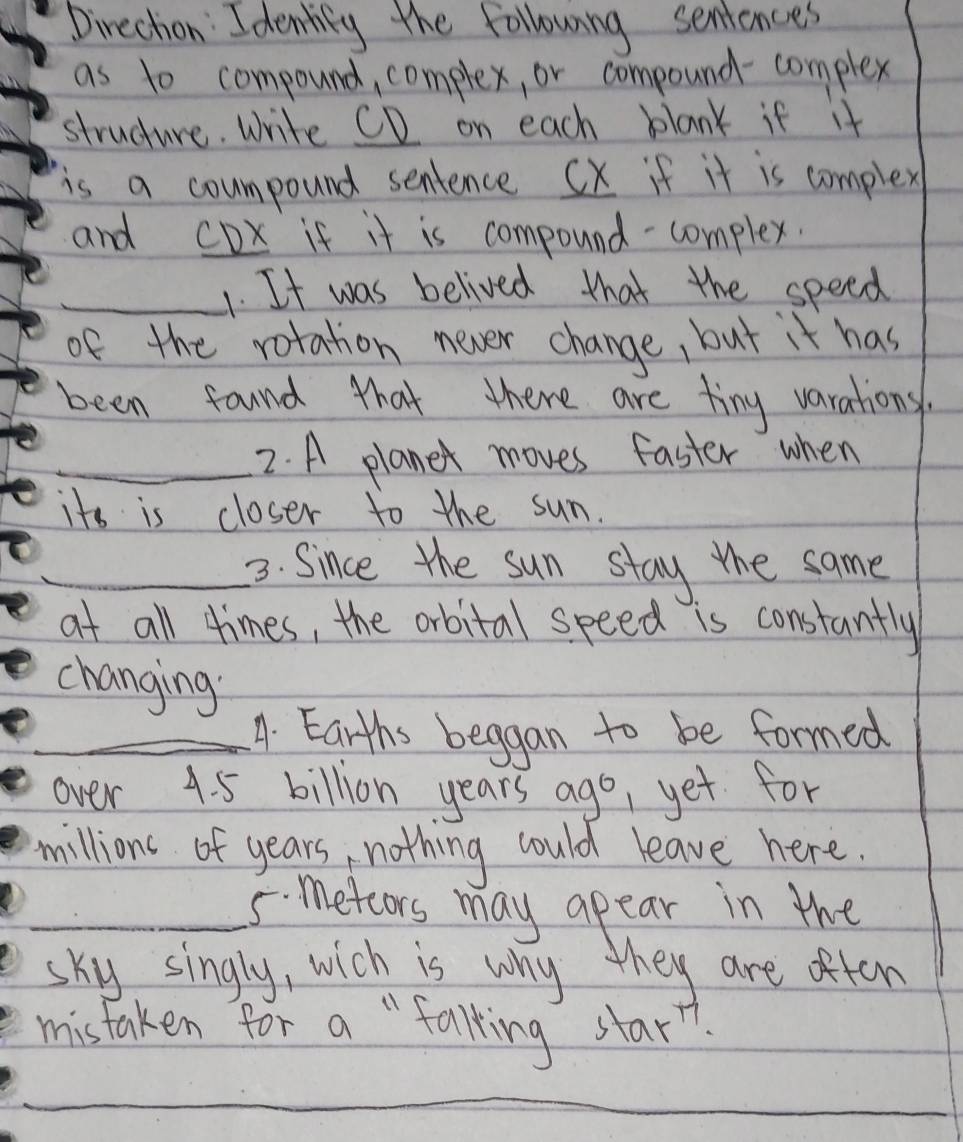 Direction: Identify the following sentences
as to compound, complex, or compound-complex
structure. Write CD on each blank if it
is a coumpound sentence CX if it is complex
and CDX if it is compound-complex.
________1. It was belived that the speed
of the rotation never change, but it has
been found that there are tiny varations.
________2. A planet moves faster when
its is closer to the sun.
________3. Since the sun stay the same
at all times, the orbital speed is constantly
changing.
________4. Earths beggan to be formed
over 4.5 billion years ago, yet for
millions of years, nothing could leave here.
________5. Meteors may apear in the
sky singly, wich is why they are often
mistaken for a "falling star".